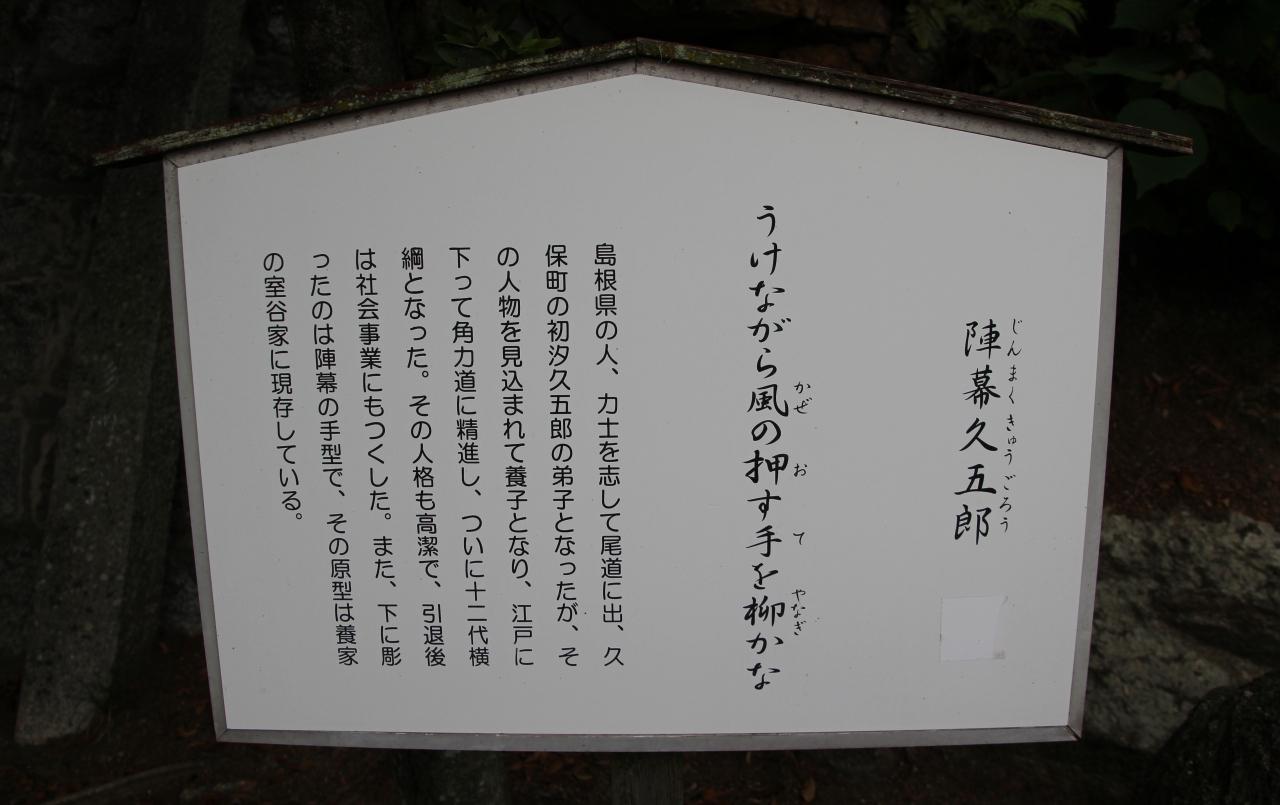 陣幕久五郎
じんまくきゅうごろう
うけながら風の押す手を柳かな
かぜ お て やなぎ
島根県の人、力士を志して尾道に出、久
保町の初汐久五郎の弟子となったが、そ
の人物を見込まれて養子となり、江戸に
下って角力道に精進し、ついに十二代横
綱となった。その人格も高潔で、引退後
は社会事業にもつくした。また、下に彫
ったのは陣幕の手型で、その原型は養家
の室谷家に現存している。